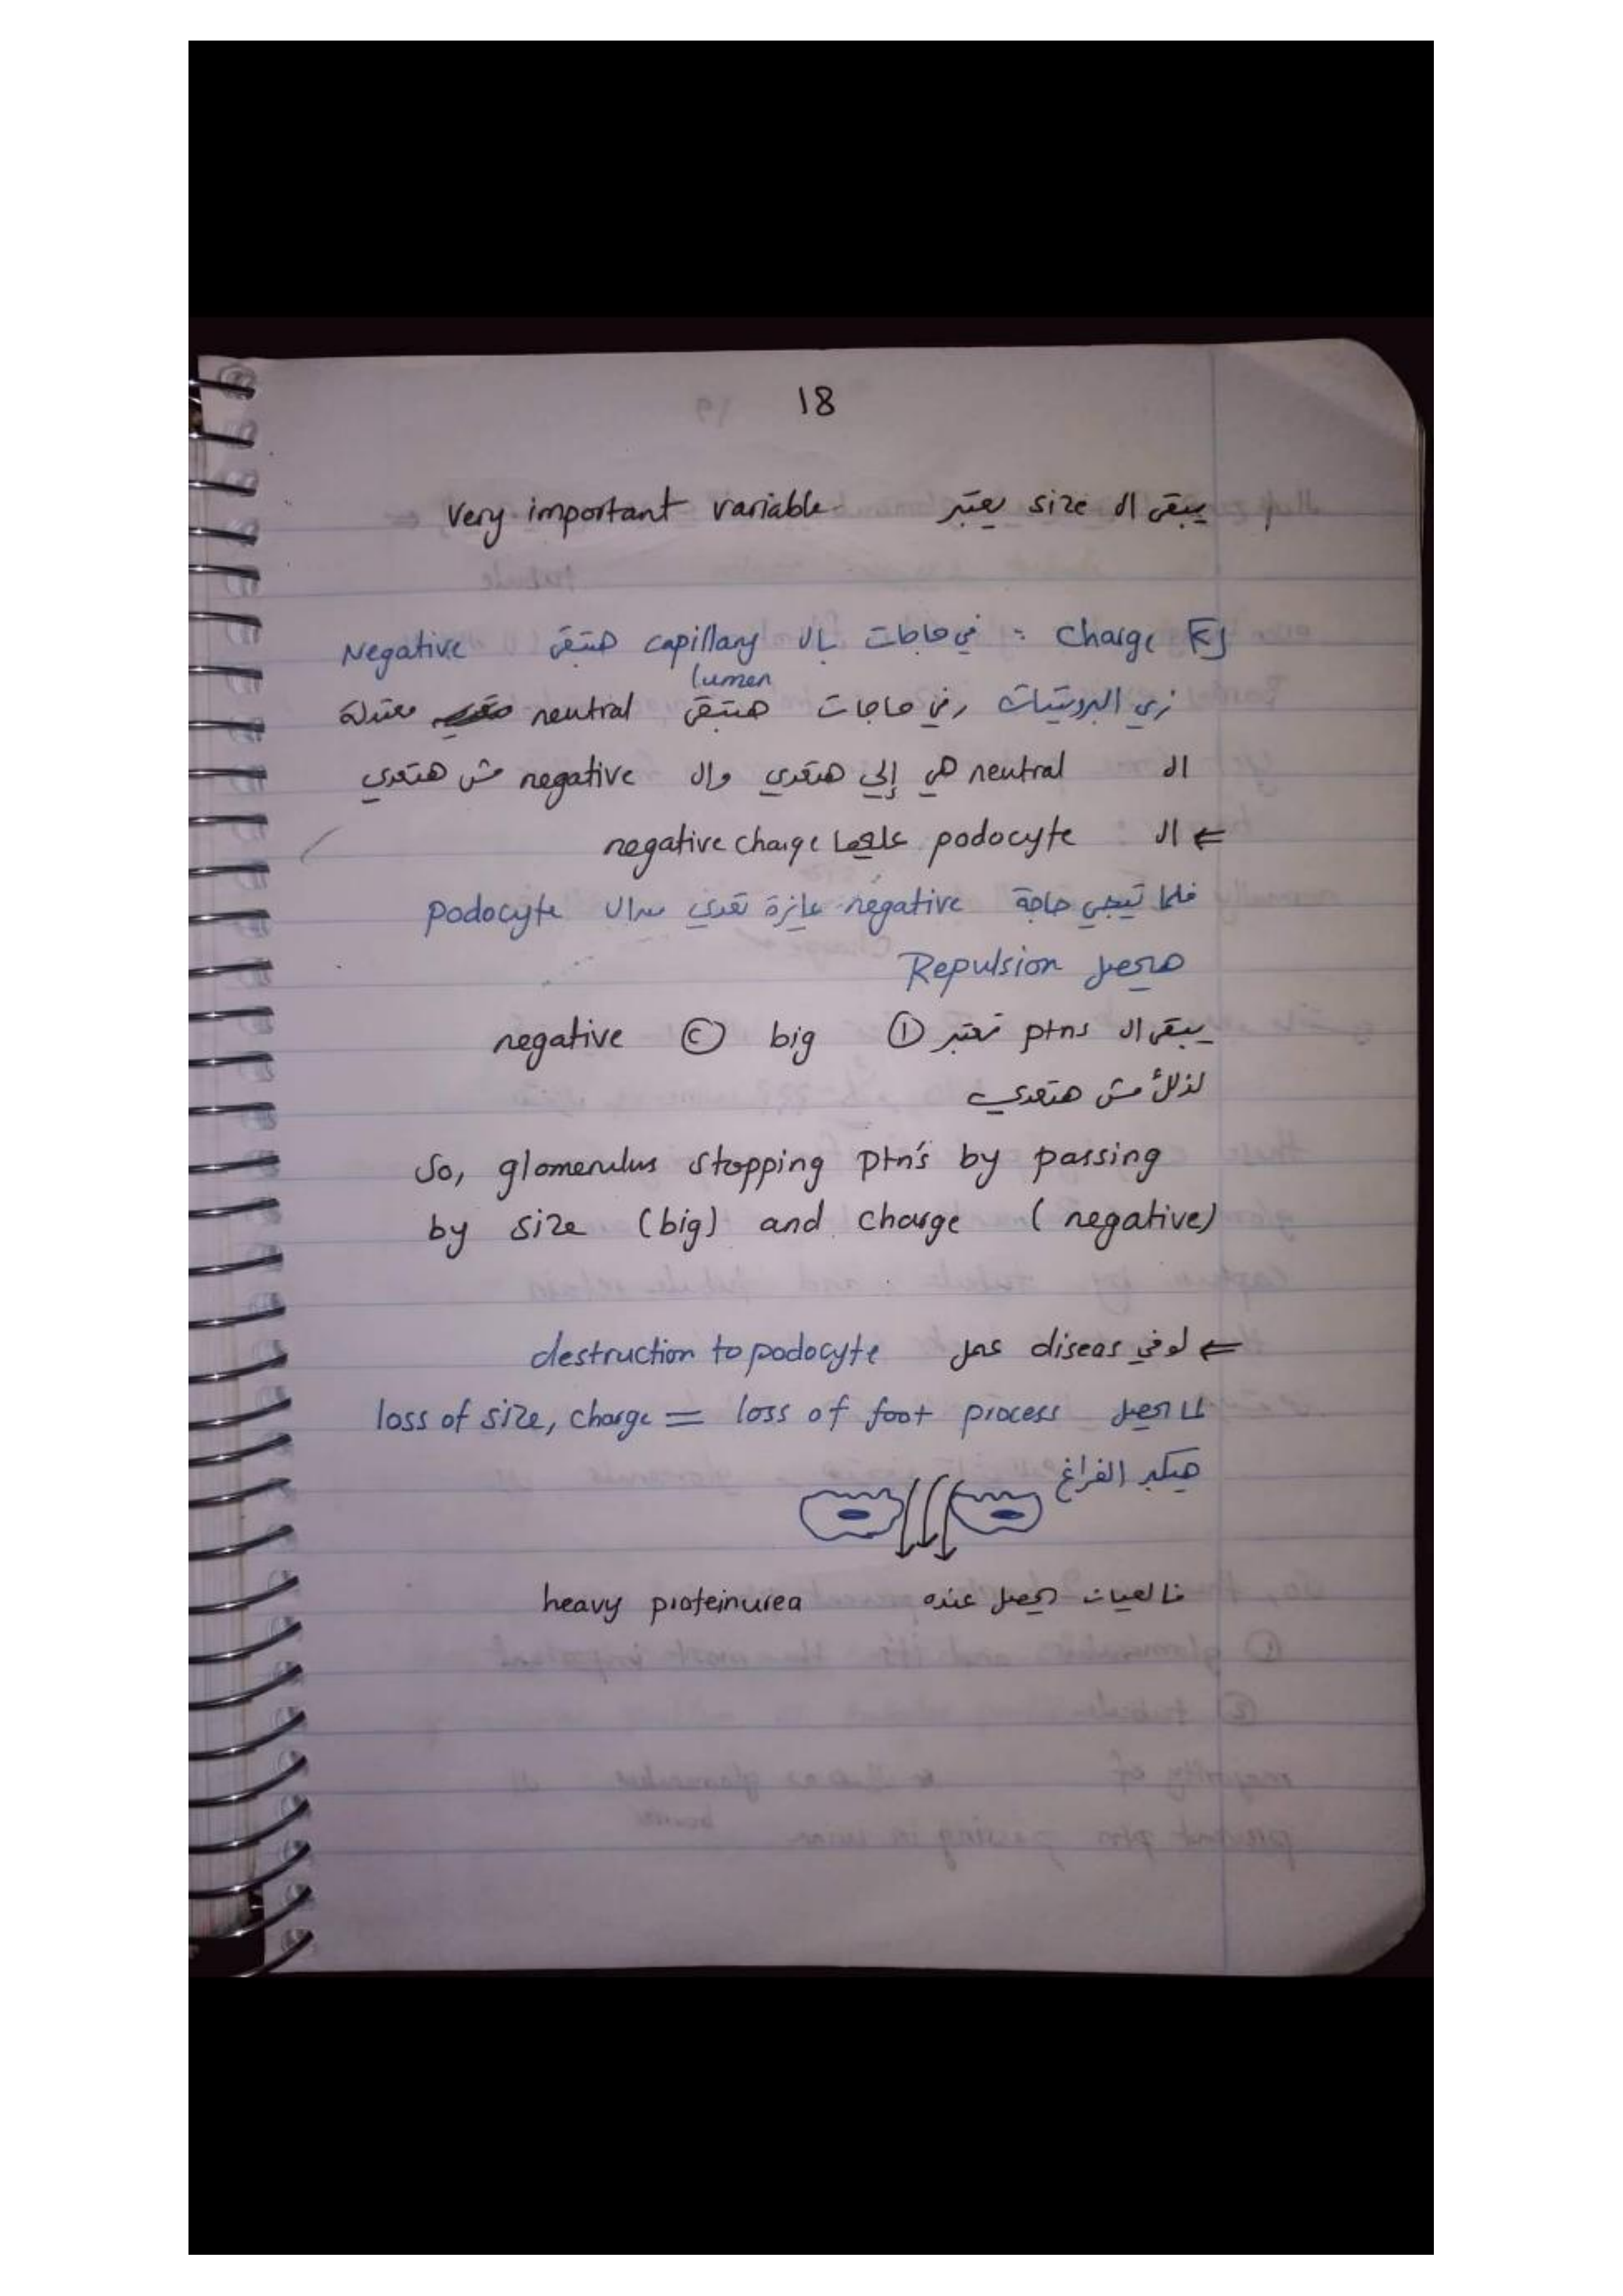 18
يبقى ال size يعتبر very important variable
Charge : في حاجات بال capillary هتبقى Negative
lumen
زي البروتينات وفي حاجات هتبقى neutral متعدلة
ال neutral هي إلي هتعدي وال negative مش هتعدي
⇐ ال podocyte عليها negative charge
فلما تيجي حاجة negative عايزة تعدي من ال podocyte
هيحصل Repulsion
يبقى ال ptns تعتبر ① big ② negative
لذلك مش هتعدي
So, glomerulus stopping ptn's by passing
by size (big) and charge (negative)
⇐ لو في diseas عمل destruction to podocyte
لما يحصل loss of foot process = loss of size, charge
هيكبر الفراغ
فالعيان يحصل عنده heavy proteinurea